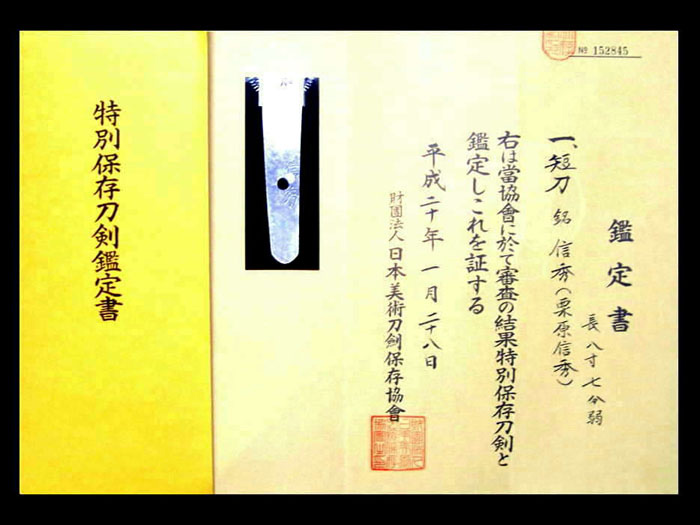 № 152845
鑑定書
一、短刀 銘 信秀(栗原信秀)
長八寸七分弱
右は當協會に於て審査の結果特別保存刀剣と
鑑定しこれを証する
平成二十年一月二十八日
財團法人 日本美術刀剣保存協會
特別保存刀剣鑑定書